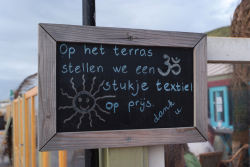 Op het terras
stellen we een ॐ
stukje textiel
op prijs.
dank
u